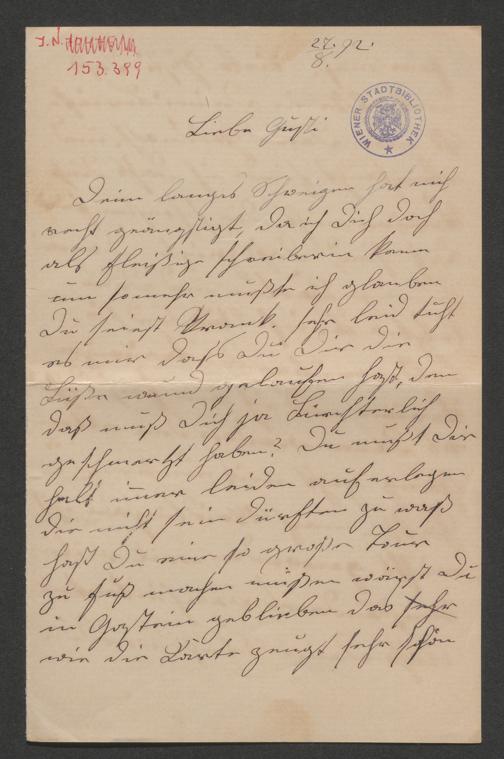 J. N.
153.399
27. 92.
8.
WIENER STADTBIBLIOTHEK
Liebe Gusti
Dein langes Schweigen hat mich
recht geängstigt, da ich Dich doch
als fleißige Schreiberin kenne
um so mehr mußte ich glauben
Du seiest krank. Sehr leid tuht
es mir daß Du Dir die
Füße wund gelaufen hast, den
daß muß Dich ja fürchterlich
geschmerzt haben? Du mußt Dir
halt imer leiden auferlegen
die nicht sein dürften zu waß
hast Du eine so große Tour
zu Fuß machen müßen wärst Du
in Gastein geblieben das sehr
wie die Karte zeugt sehr schön